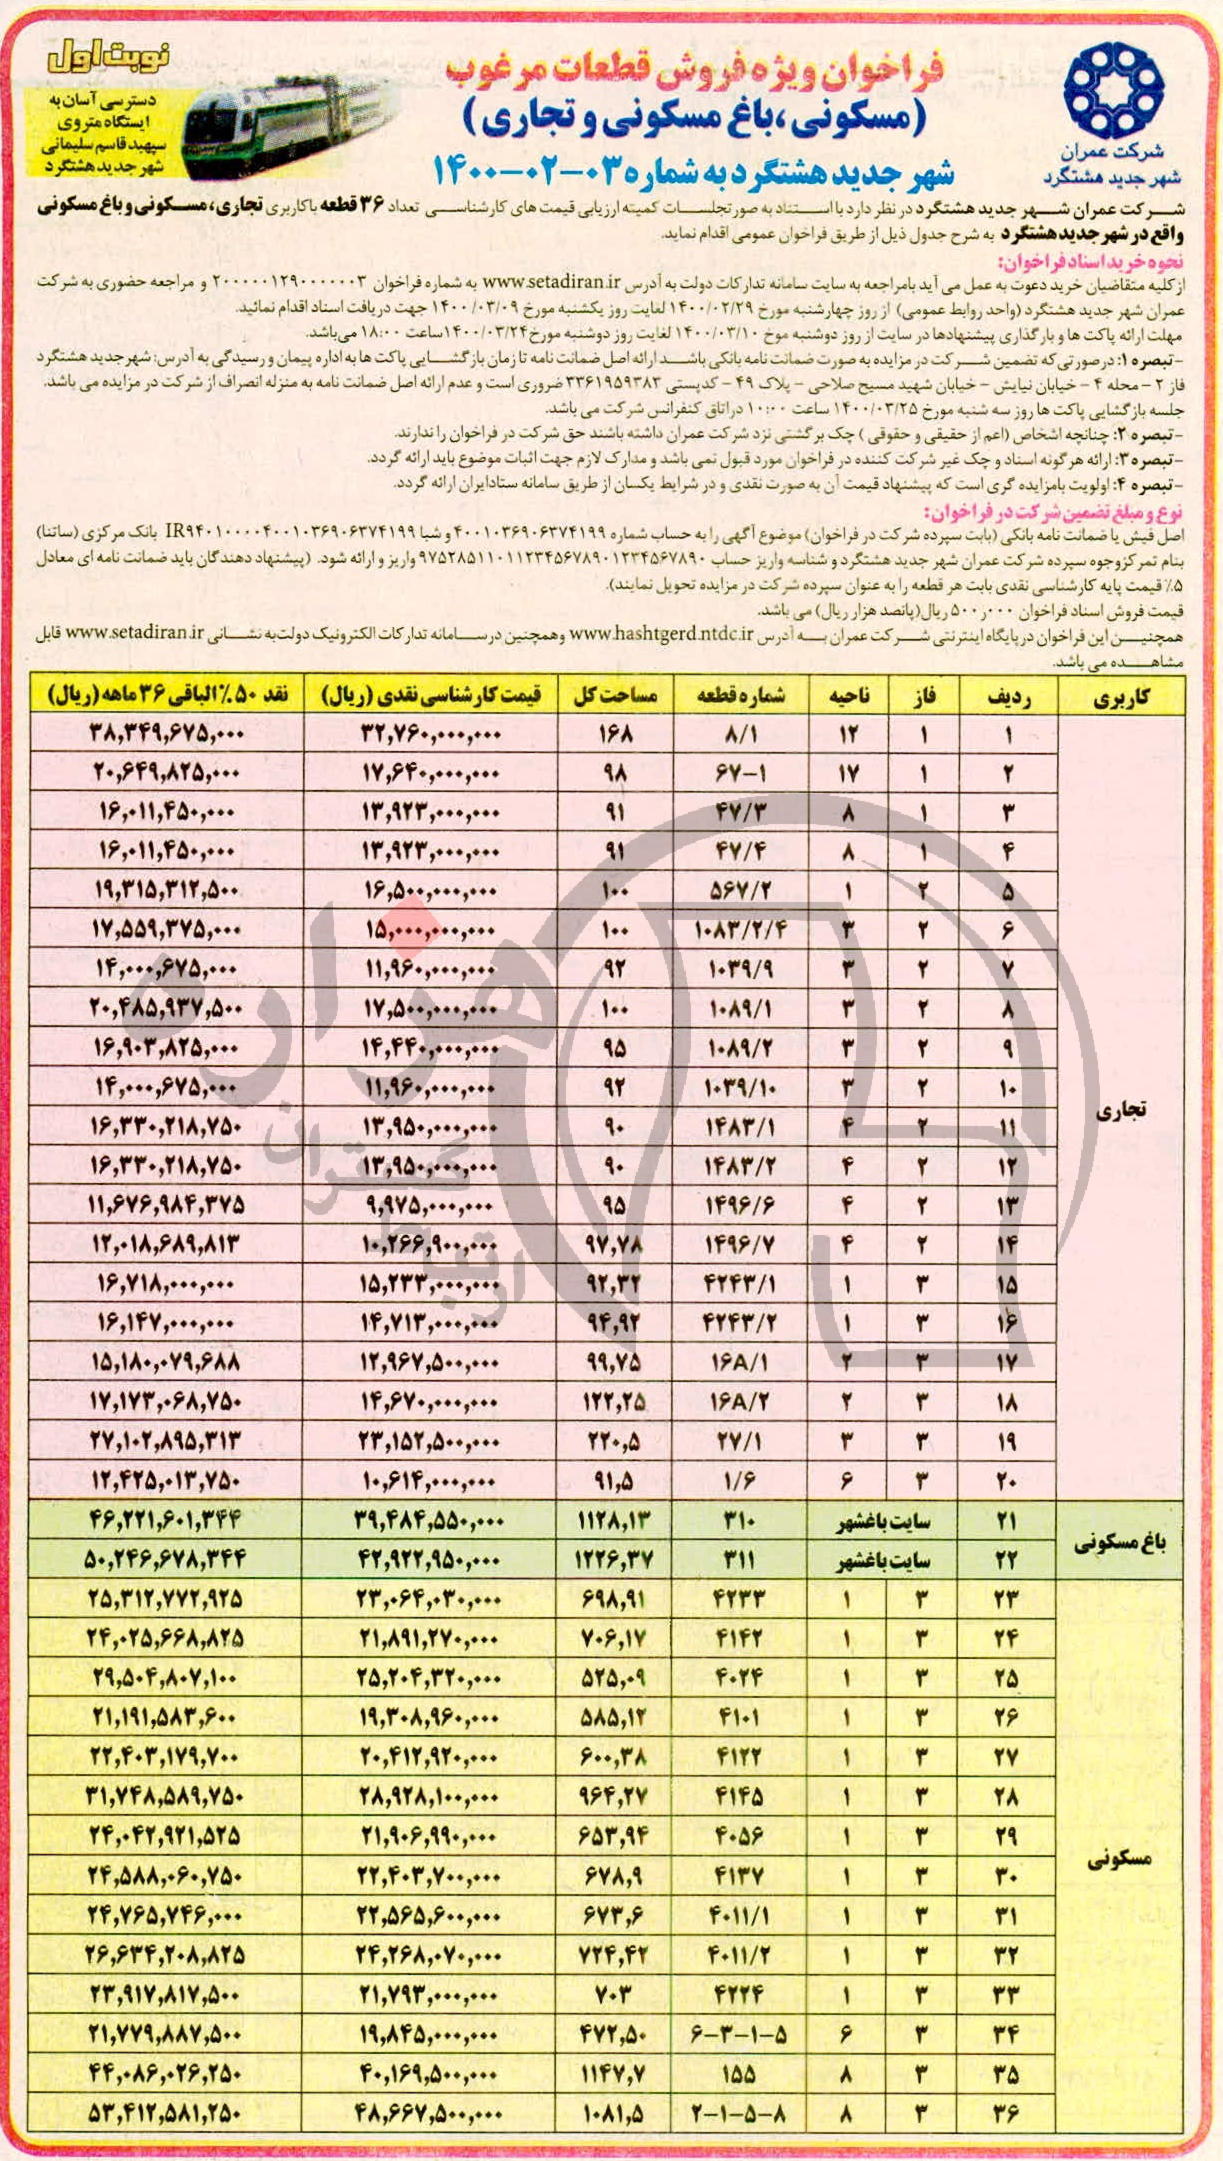 نوبت اول
دسترسی آسان به
ایستگاه متروی
سپهبد قاسم سلیمانی
شهر جدید هشتگرد
فراخوان ویژه فروش قطعات مرغوب
(مسکونی، باغ مسکونی و تجاری)
شهر جدید هشتگرد به شماره ۰۳-۰۲-۱۴۰۰
شرکت عمران
شهر جدید هشتگرد
شرکت عمران شهر جدید هشتگرد در نظر دارد با استناد به صورتجلسات کمیته ارزیابی قیمت های کارشناسی تعداد ۳۶ قطعه با کاربری تجاری، مسکونی و باغ مسکونی
واقع در شهر جدید هشتگرد به شرح جدول ذیل از طریق فراخوان عمومی اقدام نماید.
نحوه خرید اسناد فراخوان:
از کلیه متقاضیان خرید دعوت به عمل می آید بامراجعه به سایت سامانه تدارکات دولت به آدرس www.setadiran.ir به شماره فراخوان ۲۰۰۰۰۰۱۲۹۰۰۰۰۰۰۳ و مراجعه حضوری به شرکت
عمران شهر جدید هشتگرد (واحد روابط عمومی) از روز چهارشنبه مورخ ۱۴۰۰/۰۲/۲۹ لغایت روز یکشنبه مورخ ۱۴۰۰/۰۳/۰۹ جهت دریافت اسناد اقدام نمائید.
مهلت ارائه پاکت ها و بارگذاری پیشنهادها در سایت از روز دوشنبه موخ ۱۴۰۰/۰۳/۱۰ لغایت روز دوشنبه مورخ ۱۴۰۰/۰۳/۲۴ ساعت ۱۸:۰۰ می‌باشد.
-تبصره ۱: درصورتی که تضمین شرکت در مزایده به صورت ضمانت نامه بانکی باشد ارائه اصل ضمانت نامه تا زمان بازگشایی پاکت ها به اداره پیمان و رسیدگی به آدرس: شهر جدید هشتگرد
فاز ۲ - محله ۴ - خیابان نیایش - خیابان شهید مسیح صلاحی - پلاک ۴۹ - کدپستی ۳۳۶۱۹۵۹۳۸۳ ضروری است و عدم ارائه اصل ضمانت نامه به منزله انصراف از شرکت در مزایده می باشد.
جلسه بازگشایی پاکت ها روز سه شنبه مورخ ۱۴۰۰/۰۳/۲۵ ساعت ۱۰:۰۰ در اتاق کنفرانس شرکت می باشد.
-تبصره ۲: چنانچه اشخاص (اعم از حقیقی و حقوقی) چک برگشتی نزد شرکت عمران داشته باشند حق شرکت در فراخوان را ندارند.
-تبصره ۳: ارائه هرگونه اسناد و چک غیر شرکت کننده در فراخوان مورد قبول نمی باشد و مدارک لازم جهت اثبات موضوع باید ارائه گردد.
-تبصره ۴: اولویت بامزایده گری است که پیشنهاد قیمت آن به صورت نقدی و در شرایط یکسان از طریق سامانه ستادایران ارائه گردد.
نوع و مبلغ تضمین شرکت در فراخوان:
اصل فیش یا ضمانت نامه بانکی (بابت سپرده شرکت در فراخوان) موضوع آگهی را به حساب شماره ۴۰۰۱۰۳۶۹۰۶۳۷۴۱۹۹ و شبا IR۹۴۰۱۰۰۰۰۴۰۰۱۰۳۶۹۰۶۳۷۴۱۹۹ بانک مرکزی (ساتنا)
بنام تمرکز وجوه سپرده شرکت عمران شهر جدید هشتگرد و شناسه واریز حساب ۹۷۵۲۸۵۱۱۰۱۱۲۳۴۵۶۷۸۹۰۱۲۳۴۵۶۷۸۹۰ واریز و ارائه شود. (پیشنهاد دهندگان باید ضمانت نامه ای معادل
۵٪ قیمت پایه کارشناسی نقدی بابت هر قطعه را به عنوان سپرده شرکت در مزایده تحویل نمایند).
قیمت فروش اسناد فراخوان ۵۰۰٫۰۰۰ ریال (پانصد هزار ریال) می باشد.
همچنین این فراخوان در پایگاه اینترنتی شرکت عمران به آدرس www.hashtgerd.ntdc.ir و همچنین در سامانه تدارکات الکترونیک دولت به نشانی www.setadiran.ir قابل
مشاهده می باشد.
کاربری ردیف فاز ناحیه شماره قطعه مساحت کل قیمت کارشناسی نقدی (ریال) نقد ۵۰٪ الباقی ۳۶ ماهه (ریال)
تجاری
۱ ۱ ۱۲ ۸/۱ ۱۶۸ ۳۲,۷۶۰,۰۰۰,۰۰۰ ۳۸,۳۴۹,۶۷۵,۰۰۰
۲ ۱ ۱۷ ۶۷-۱ ۹۸ ۱۷,۶۴۰,۰۰۰,۰۰۰ ۲۰,۶۴۹,۸۲۵,۰۰۰
۳ ۱ ۸ ۴۷/۳ ۹۱ ۱۳,۹۲۳,۰۰۰,۰۰۰ ۱۶,۰۱۱,۴۵۰,۰۰۰
۴ ۱ ۸ ۴۷/۴ ۹۱ ۱۳,۹۲۳,۰۰۰,۰۰۰ ۱۶,۰۱۱,۴۵۰,۰۰۰
۵ ۲ ۱ ۵۶۷/۲ ۱۰۰ ۱۶,۵۰۰,۰۰۰,۰۰۰ ۱۹,۳۱۵,۳۱۲,۵۰۰
۶ ۲ ۳ ۱۰۸۳/۲/۴ ۱۰۰ ۱۵,۰۰۰,۰۰۰,۰۰۰ ۱۷,۵۵۹,۳۷۵,۰۰۰
۷ ۲ ۳ ۱۰۳۹/۹ ۹۲ ۱۱,۹۶۰,۰۰۰,۰۰۰ ۱۴,۰۰۰,۶۷۵,۰۰۰
۸ ۲ ۳ ۱۰۸۹/۱ ۱۰۰ ۱۷,۵۰۰,۰۰۰,۰۰۰ ۲۰,۴۸۵,۹۳۷,۵۰۰
۹ ۲ ۳ ۱۰۸۹/۲ ۹۵ ۱۴,۴۴۰,۰۰۰,۰۰۰ ۱۶,۹۰۳,۸۲۵,۰۰۰
۱۰ ۲ ۳ ۱۰۳۹/۱۰ ۹۲ ۱۱,۹۶۰,۰۰۰,۰۰۰ ۱۴,۰۰۰,۶۷۵,۰۰۰
۱۱ ۲ ۴ ۱۴۸۳/۱ ۹۰ ۱۳,۹۵۰,۰۰۰,۰۰۰ ۱۶,۳۳۰,۲۱۸,۷۵۰
۱۲ ۲ ۴ ۱۴۸۳/۲ ۹۰ ۱۳,۹۵۰,۰۰۰,۰۰۰ ۱۶,۳۳۰,۲۱۸,۷۵۰
۱۳ ۲ ۴ ۱۴۹۶/۶ ۹۵ ۹,۹۷۵,۰۰۰,۰۰۰ ۱۱,۶۷۶,۹۸۴,۳۷۵
۱۴ ۲ ۴ ۱۴۹۶/۷ ۹۷,۷۸ ۱۰,۲۶۶,۹۰۰,۰۰۰ ۱۲,۰۱۸,۶۸۹,۸۱۳
۱۵ ۳ ۱ ۴۲۴۳/۱ ۹۲,۳۲ ۱۵,۲۳۳,۰۰۰,۰۰۰ ۱۶,۷۱۸,۰۰۰,۰۰۰
۱۶ ۳ ۱ ۴۲۴۳/۲ ۹۴,۹۲ ۱۴,۷۱۳,۰۰۰,۰۰۰ ۱۶,۱۴۷,۰۰۰,۰۰۰
۱۷ ۳ ۲ ۱۶A/۱ ۹۹,۷۵ ۱۲,۹۶۷,۵۰۰,۰۰۰ ۱۵,۱۸۰,۰۷۹,۶۸۸
۱۸ ۳ ۲ ۱۶A/۲ ۱۲۲,۲۵ ۱۴,۶۷۰,۰۰۰,۰۰۰ ۱۷,۱۷۳,۰۶۸,۷۵۰
۱۹ ۳ ۳ ۲۷/۱ ۲۲۰,۵ ۲۳,۱۵۲,۵۰۰,۰۰۰ ۲۷,۱۰۲,۸۹۵,۳۱۳
۲۰ ۳ ۶ ۱/۶ ۹۱,۵ ۱۰,۶۱۴,۰۰۰,۰۰۰ ۱۲,۴۲۵,۰۱۳,۷۵۰
باغ مسکونی
۲۱ سایت باغشهر ۳۱۰ ۱۱۲۸,۱۳ ۳۹,۴۸۴,۵۵۰,۰۰۰ ۴۶,۲۲۱,۶۰۱,۳۴۴
۲۲ سایت باغشهر ۳۱۱ ۱۲۲۶,۳۷ ۴۲,۹۲۲,۹۵۰,۰۰۰ ۵۰,۲۴۶,۶۷۸,۳۴۴
مسکونی
۲۳ ۳ ۱ ۴۲۳۳ ۶۹۸,۹۱ ۲۳,۰۶۴,۰۳۰,۰۰۰ ۲۵,۳۱۲,۷۷۲,۹۲۵
۲۴ ۳ ۱ ۴۱۴۲ ۷۰۶,۱۷ ۲۱,۸۹۱,۲۷۰,۰۰۰ ۲۴,۰۲۵,۶۶۸,۸۲۵
۲۵ ۳ ۱ ۴۰۲۴ ۵۲۵,۰۹ ۲۵,۲۰۴,۳۲۰,۰۰۰ ۲۹,۵۰۴,۸۰۷,۱۰۰
۲۶ ۳ ۱ ۴۱۰۱ ۵۸۵,۱۲ ۱۹,۳۰۸,۹۶۰,۰۰۰ ۲۱,۱۹۱,۵۸۳,۶۰۰
۲۷ ۳ ۱ ۴۱۲۲ ۶۰۰,۳۸ ۲۰,۴۱۲,۹۲۰,۰۰۰ ۲۲,۴۰۳,۱۷۹,۷۰۰
۲۸ ۳ ۱ ۴۱۴۵ ۹۶۴,۲۷ ۲۸,۹۲۸,۱۰۰,۰۰۰ ۳۱,۷۴۸,۵۸۹,۷۵۰
۲۹ ۳ ۱ ۴۰۵۶ ۶۵۳,۹۴ ۲۱,۹۰۶,۹۹۰,۰۰۰ ۲۴,۰۴۲,۹۲۱,۵۲۵
۳۰ ۳ ۱ ۴۱۳۷ ۶۷۸,۹ ۲۲,۴۰۳,۷۰۰,۰۰۰ ۲۴,۵۸۸,۰۶۰,۷۵۰
۳۱ ۳ ۱ ۴۰۱۱/۱ ۶۷۳,۶ ۲۲,۵۶۵,۶۰۰,۰۰۰ ۲۴,۷۶۵,۷۴۶,۰۰۰
۳۲ ۳ ۱ ۴۰۱۱/۲ ۷۲۴,۴۲ ۲۴,۲۶۸,۰۷۰,۰۰۰ ۲۶,۶۳۴,۲۰۸,۸۲۵
۳۳ ۳ ۱ ۴۲۲۴ ۷۰۳ ۲۱,۷۹۳,۰۰۰,۰۰۰ ۲۳,۹۱۷,۸۱۷,۵۰۰
۳۴ ۳ ۶ ۶-۳-۱-۵ ۴۷۲,۵۰ ۱۹,۸۴۵,۰۰۰,۰۰۰ ۲۱,۷۷۹,۸۸۷,۵۰۰
۳۵ ۳ ۸ ۱۵۵ ۱۱۴۷,۷ ۴۰,۱۶۹,۵۰۰,۰۰۰ ۴۴,۰۸۶,۰۲۶,۲۵۰
۳۶ ۳ ۸ ۲-۱-۵-۸ ۱۰۸۱,۵ ۴۸,۶۶۷,۵۰۰,۰۰۰ ۵۳,۴۱۲,۵۸۱,۲۵۰